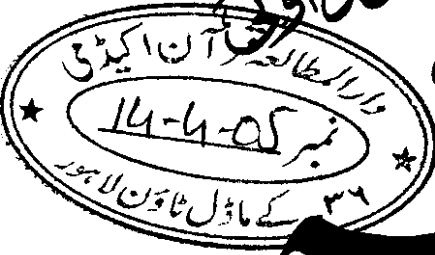 دارالمطالعہ قرآن اکیڈمی
نمبر 14-4-05
۳۶ کے ماڈل ٹاؤن لاہور